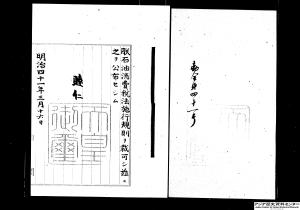 勅令第四十一号
朕石油消費税法施行規則ヲ裁可シ茲ニ
之ヲ公布セシム
睦仁
天皇御璽
明治四十一年三月十六日
アジア歴史資料センター